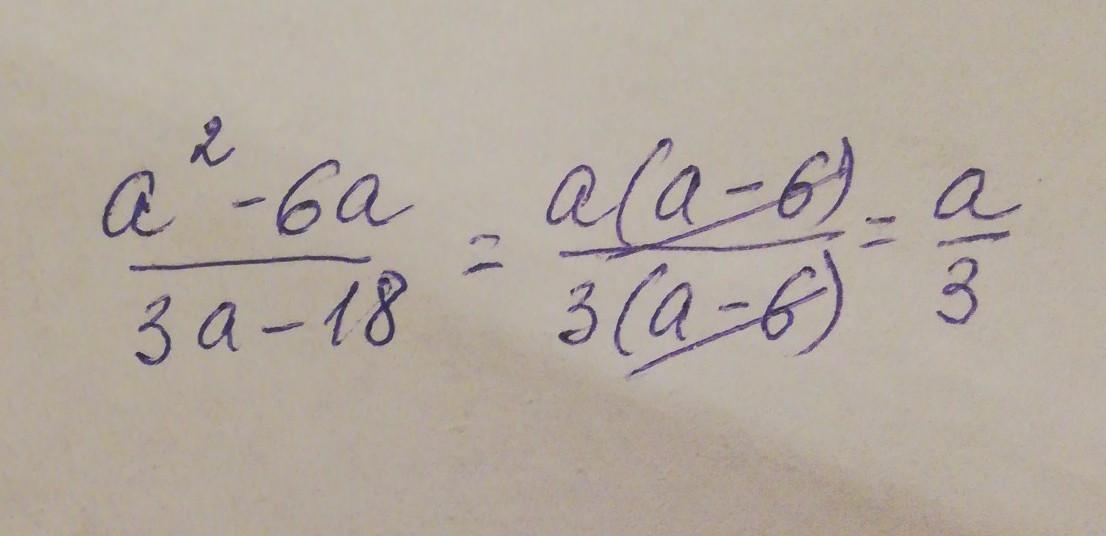 a² - 6a / 3a - 18 = a(a - 6) / 3(a - 6) = a / 3